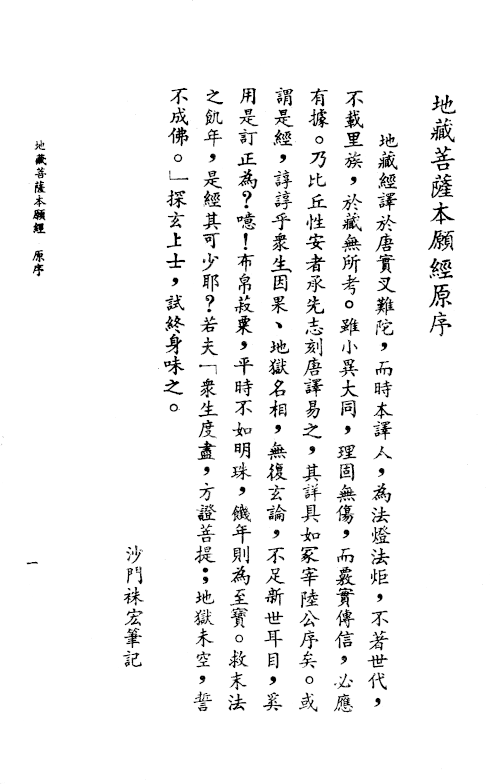 地藏菩薩本願經原序
地藏經譯於唐實叉難陀，而時本譯人，為法燈法炬，不著世代，
不載里族，於藏無所考。雖小異大同，理固無傷，而覈實傳信，必應
有據。乃比丘性安者承先志刻唐譯易之，其詳具如冢宰陸公序矣。或
謂是經，諄諄乎衆生因果、地獄名相，無復玄論，不足新世耳目，奚
用是訂正為？噫！布帛菽粟，平時不如明珠，饑年則為至寶。救末法
之飢年，是經其可少耶？若夫「衆生度盡，方證菩提；地獄未空，誓
不成佛。」探玄上士，試終身味之。
沙門袾宏筆記
地藏菩薩本願經　原序
一